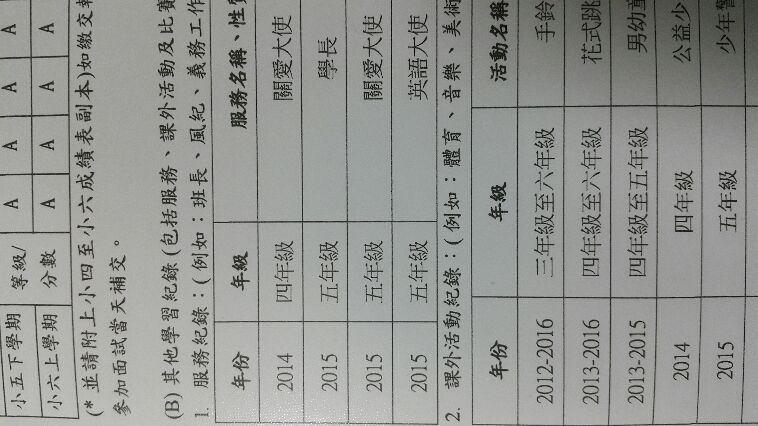 小五下學期 等級/ A A A A
小六上學期 分數 A A A A
(* 並請附上小四至小六成績表副本)如繳交
參加面試當天補交。
(B) 其他學習紀錄(包括服務、課外活動及比賽
1. 服務紀錄：(例如：班長、風紀、義務工作
年份 年級 服務名稱、性質
2014 四年級 關愛大使
2015 五年級 學長
2015 五年級 關愛大使
2015 五年級 英語大使
2. 課外活動紀錄：(例如：體育、音樂、美術
年份 年級 活動名稱
2012-2016 三年級至六年級 手鈴
2013-2016 四年級至六年級 花式跳
2013-2015 四年級至五年級 男幼童
2014 四年級 公益少
2015 五年級 少年警